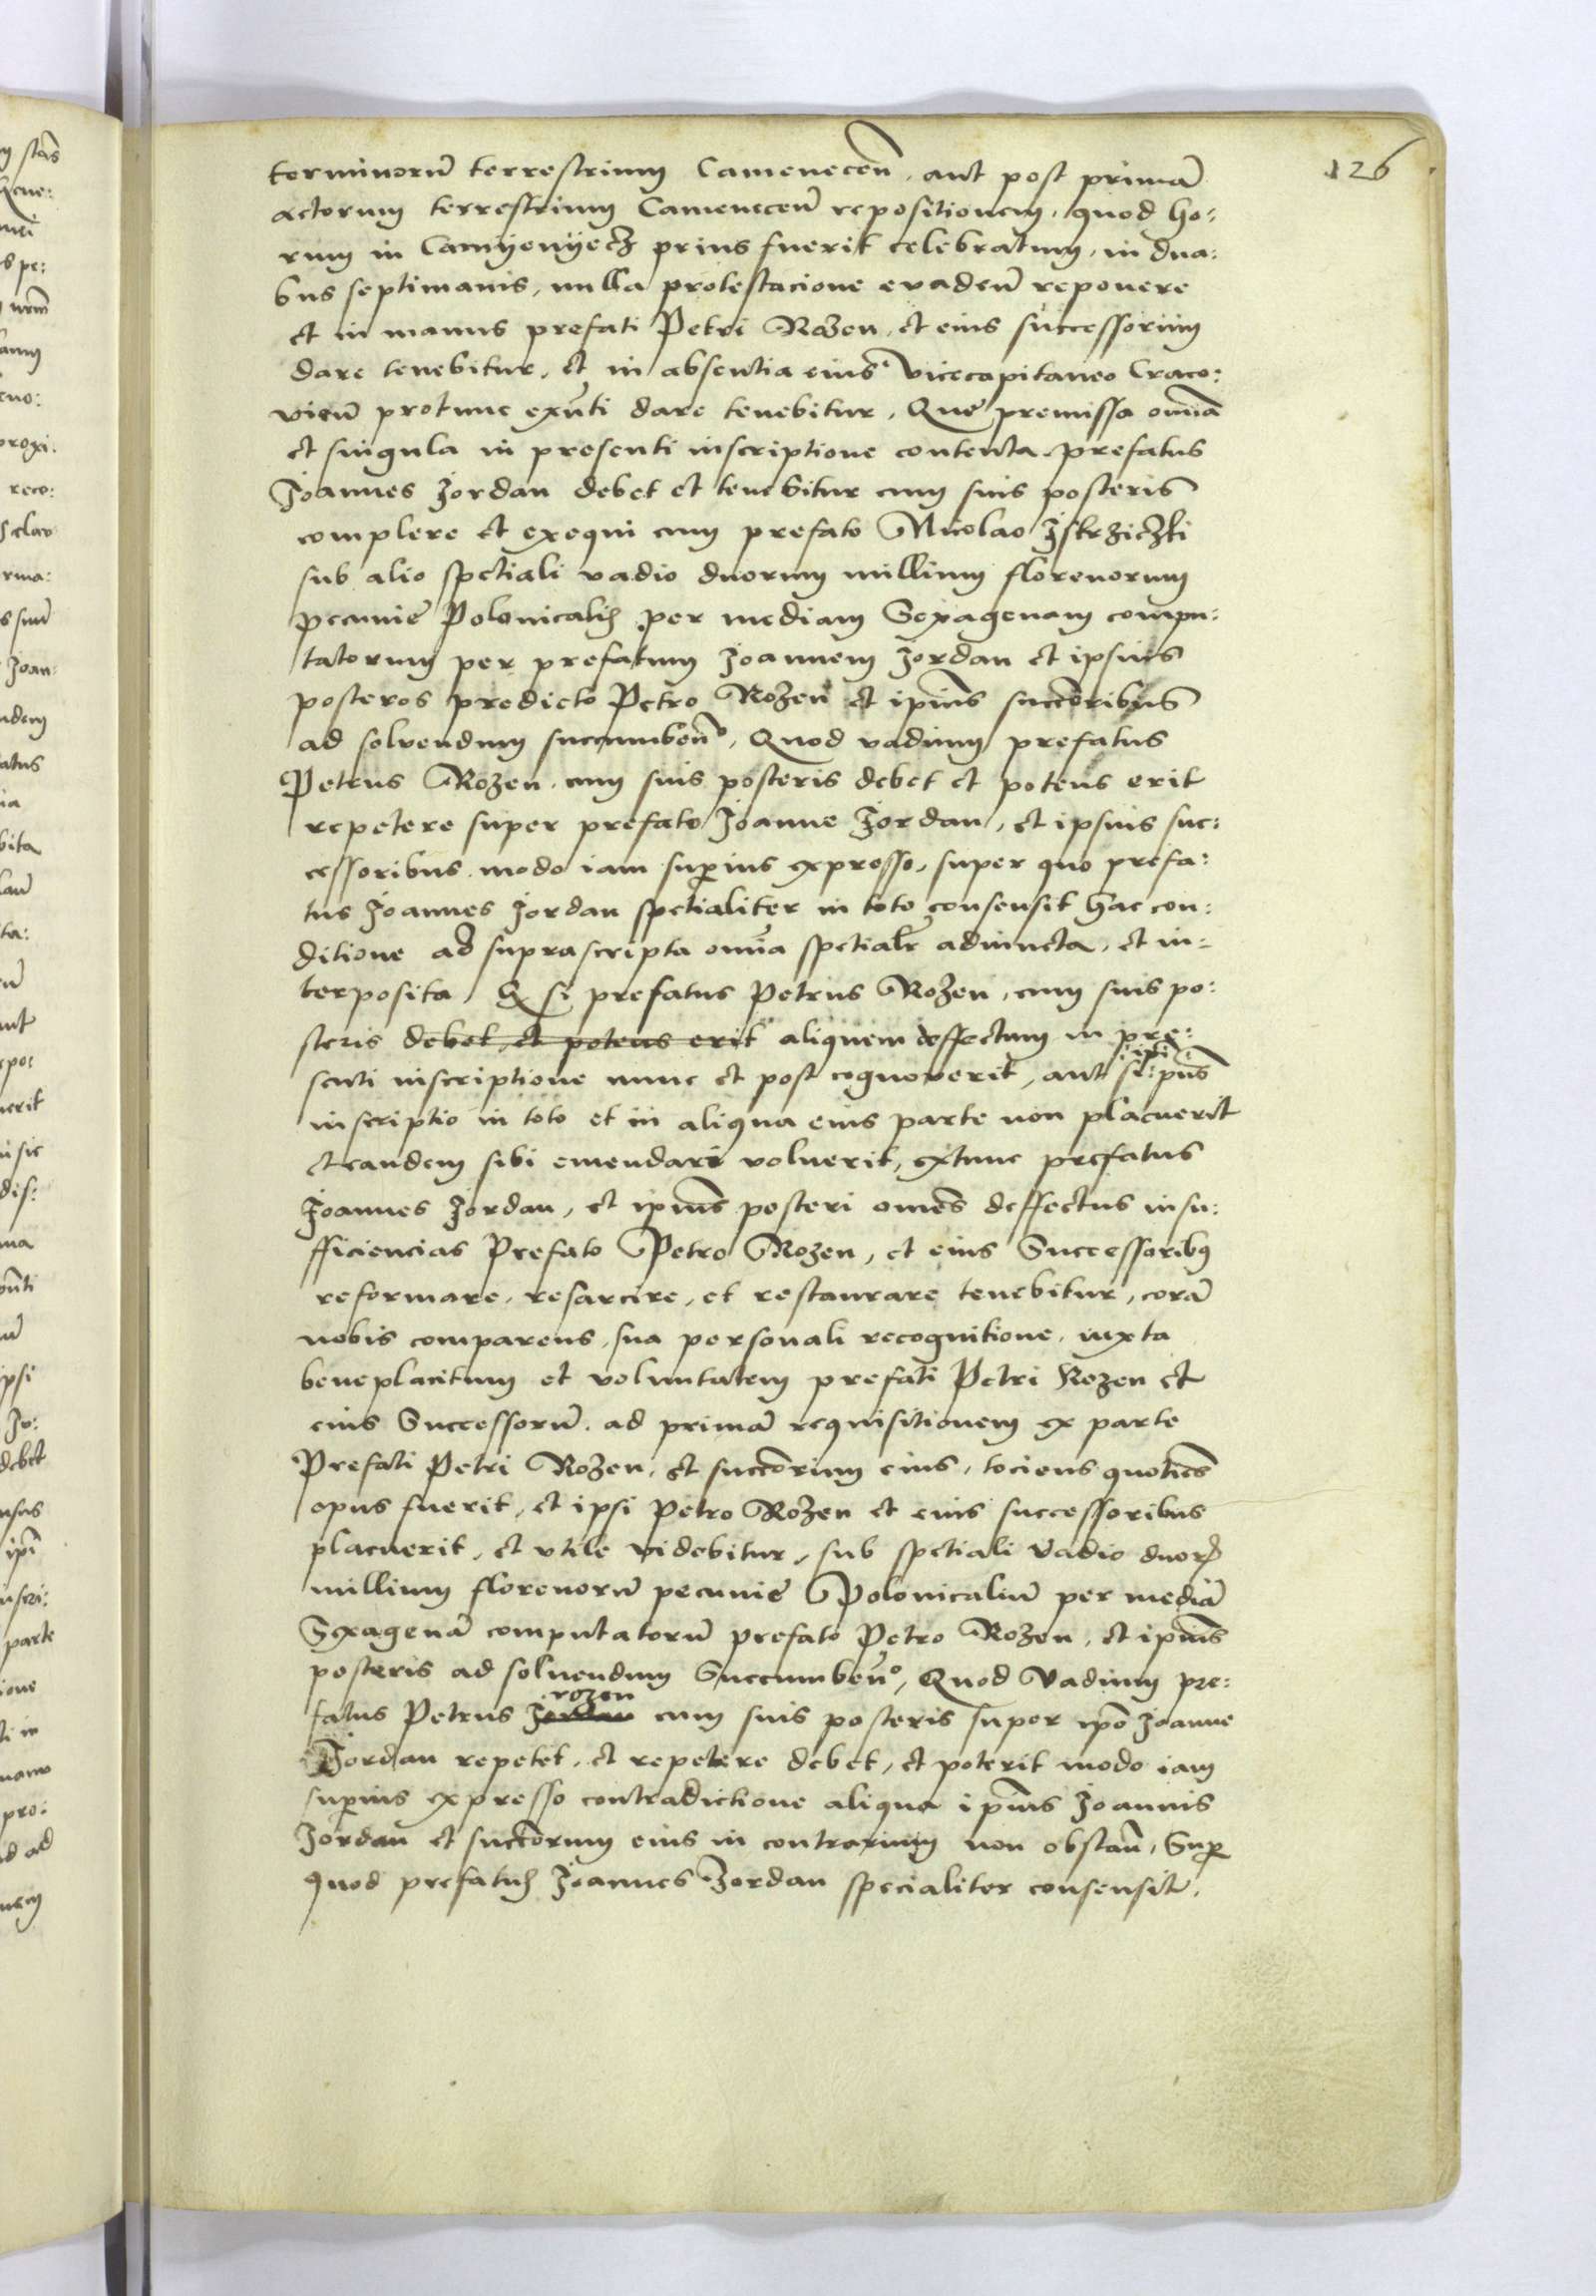 126
terminorũ terrestrium Camenecen̄, aut post primã
actorum terrestrium Camenecen̄ repositionem, quod ho:
rum in Camÿenÿecz prius fuerit celebratum, in dua:
bus septimanis, nulla protestacione evaden̄ reponere
et in manus prefati Petri Rozen, et eius successorum
dare tenebitur, et in absentia eius vicecapitaneo Craco:
vien̄ protunc exn̄ti dare tenebitur, Que premissa omnia
et singula in presenti inscriptione contenta prefatus
Joannes Jordan debet et tenebitur cum suis posteris
complere et exequi cum prefato Nicolao
sub alio spetiali vadio duorum millium florenorum
pecunie Polonicalis per mediam Sexagenam compu:
tatorum per prefatum Joannem Jordan et ipsius
posteros predicto Petro Rozen et ipīus succoribus
ad solvendum succumben̄º, Quod vadium prefatus
Petrus Rozen cum suis posteris debet et potens erit
repetere super prefato Joanne Jordan, et ipsius suc:
cessoribus modo iam superius expresso, super quo prefa:
tus Joannes Jordan spetialiter in toto consensit hac con:
ditione ad suprascripta omīa spetialr̄ adiuncta, et in:
terposita, Q si prefatus Petrus Rozen, cum suis po:
steris debet, et potens erit aliquem deffectum in pre:
senti inscriptione nunc et post cognoverit, aut si ipsi pn̄s
inscriptio in toto et in aliqua eius parte non placuerit
et eandem sibi emendari voluerit, extunc prefatus
Joannes Jordan, et ipīus posteri omēs deffectus insu:
fficiencias Prefato Petro Rozen, et eius Successoribus
reformare, resarcire, et restaurare tenebitur, corã
nobis comparens, sua personali recognitione, iuxta
beneplacitum et voluntatem prefati Petri Rozen et
eius Successorũ, ad primã requisitionem ex parte
Prefati Petri Rozen, et succorum eius, tociens quotiēs
opus fuerit, et ipsi Petro Rozen et eius successoribus
placuerit, et utile videbitur, sub spetiali vadio duor
millium florenorũ pecunie Polonicaliũ per mediã
Sexagenã computatorũ prefato Petro Rozen, et ipīus
posteris ad solvendum Succumben̄º, Quod Vadium pre:
fatus Petrus Jordan rozen cum suis posteris super ip̄o Joanne
Jordan repetet, et repetere debet, et poterit modo iam
superius expresso contradictione aliqua ipīus Joannis
Jordan et succorum eius in contrarium non obstan̄, Super
quod prefatus Joannes Jordan specialiter consensit.